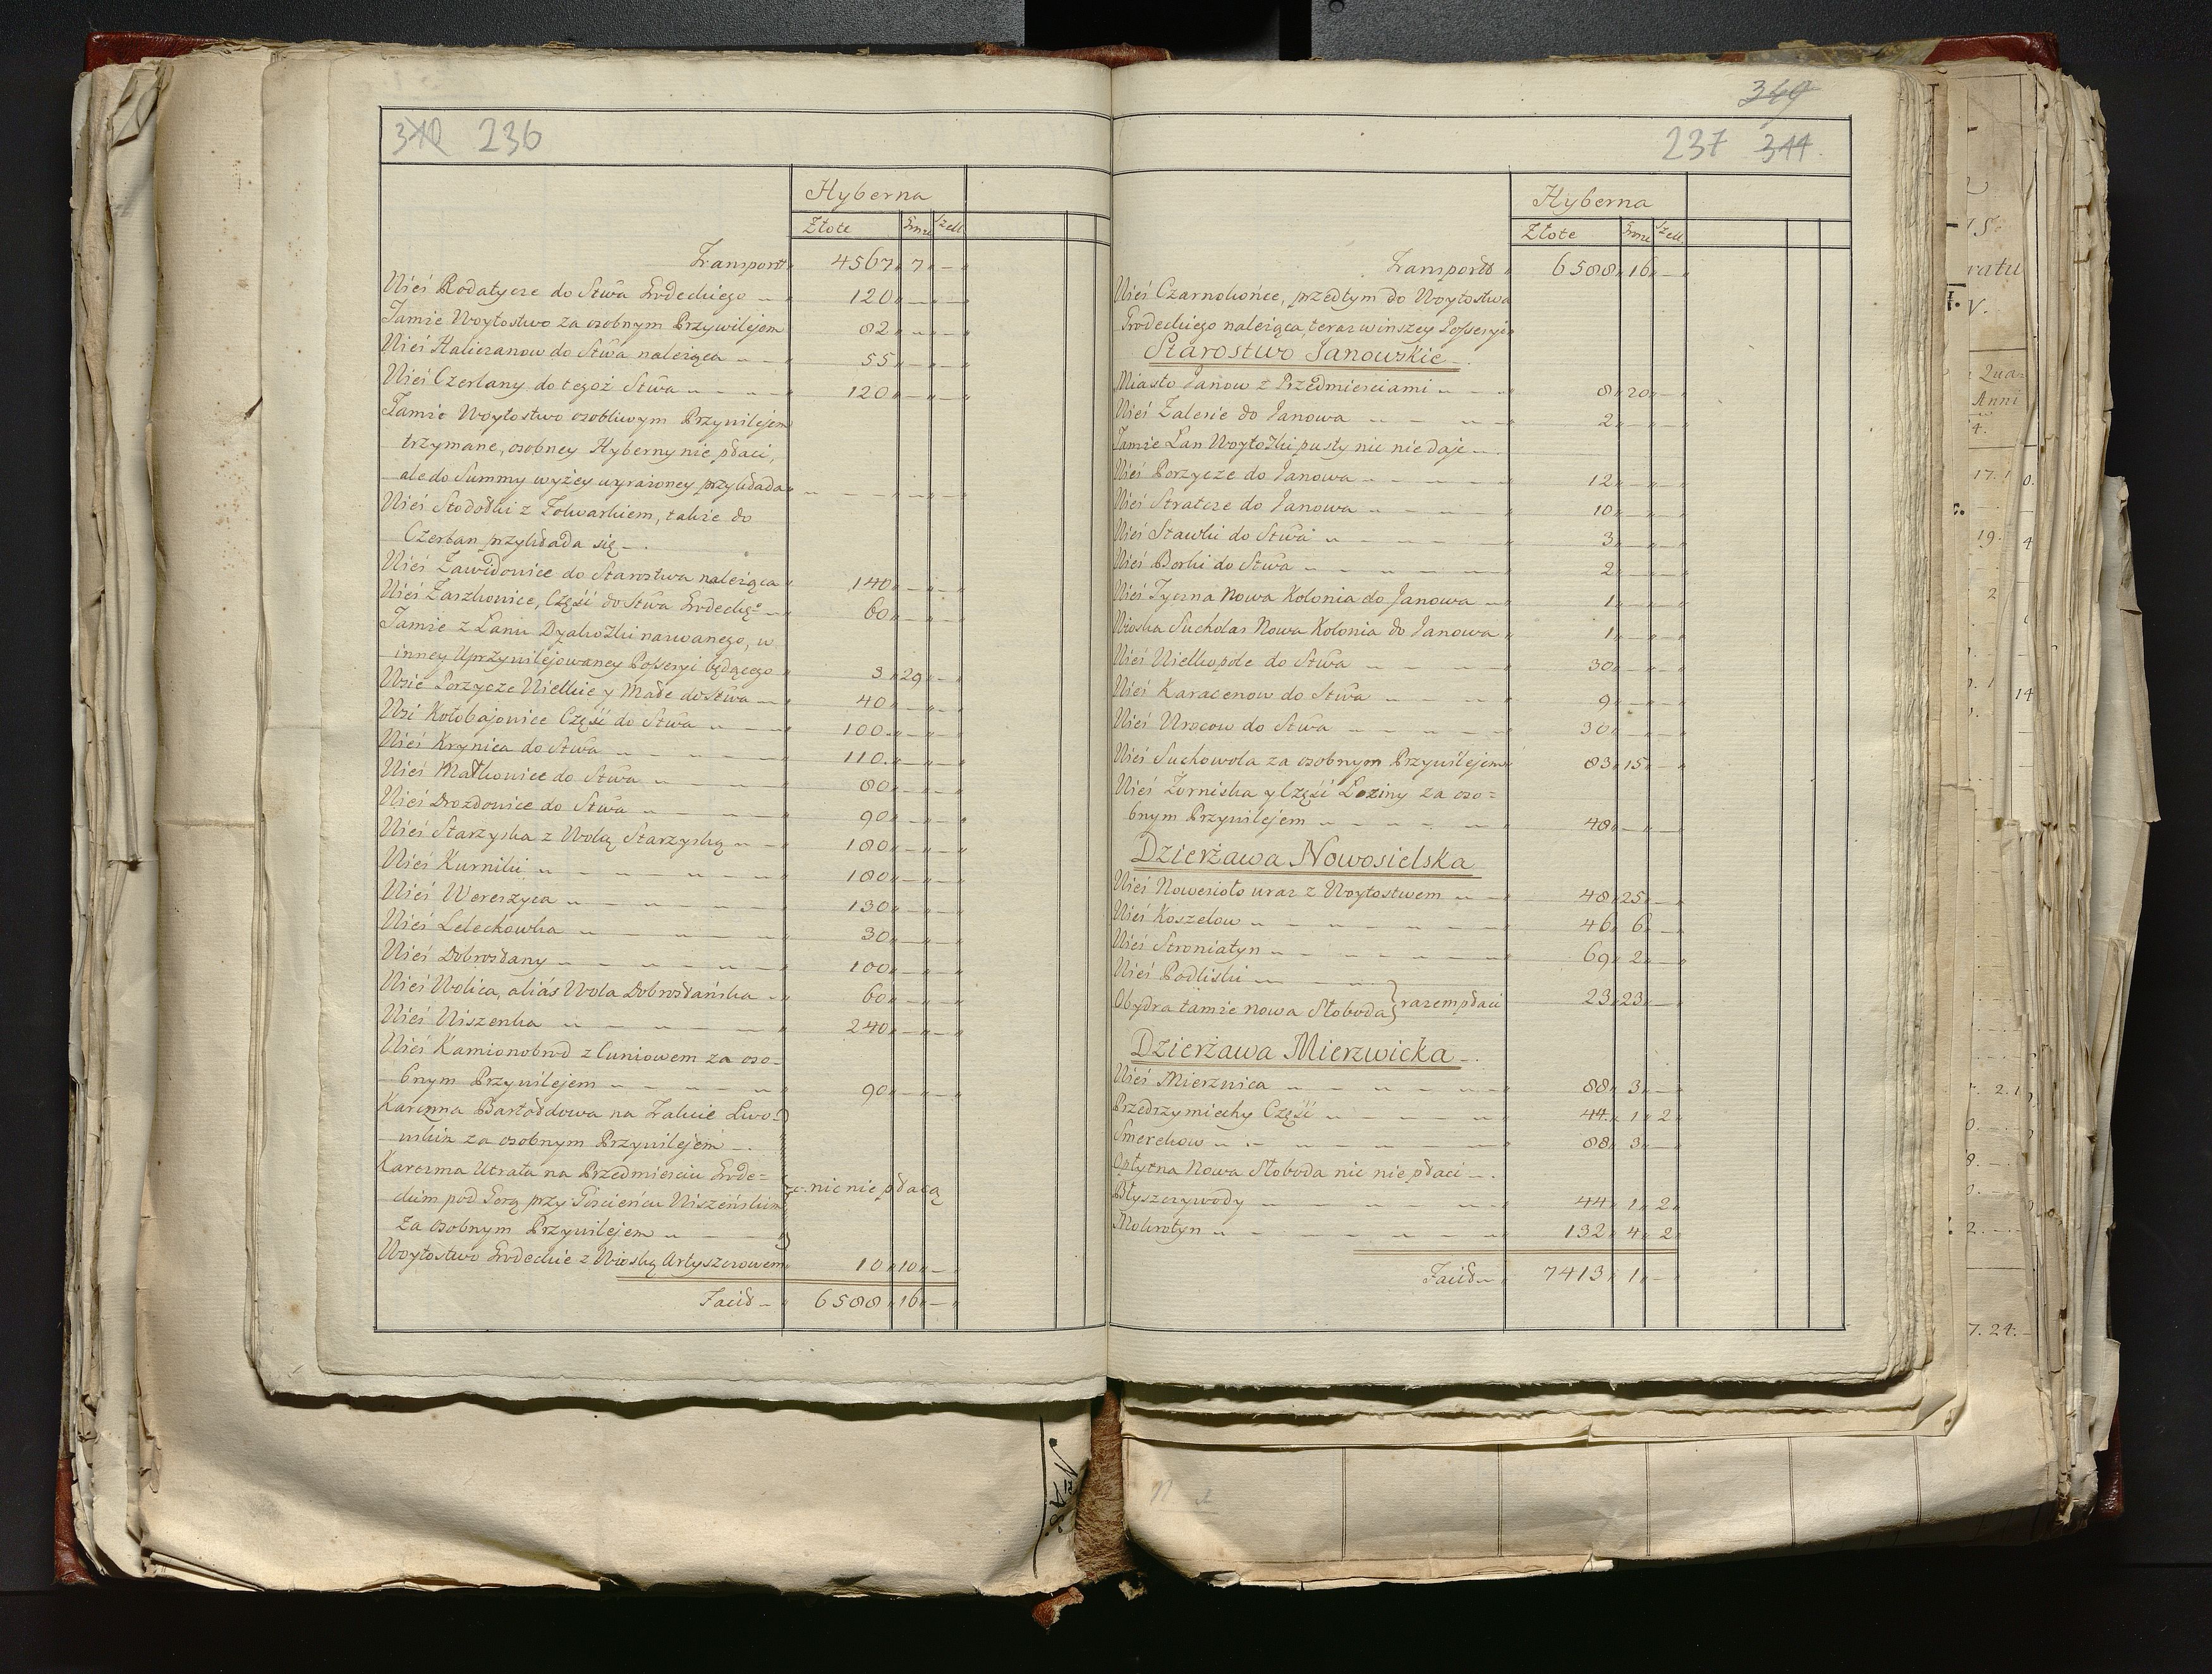 236
Hyberna
Złote Grosze Szell
Transport 4567 7 —
Wieś Rodatycze do Stwa Grodeckiego 120 — —
Tamże Woytostwo za osobnym Przywilejem 82 — —
Wieś Haliczanow do Stwa należąca 55 — —
Wieś Czerlany do tegoż Stwa 120 — —
Tamże Woytostwo osobliwym Przywilejem
trzymane, osobney Hyberny nie płaci,
ale do Summy wyżey wyrażoney przykłada — — —
Wieś Stodołki z Folwarkiem, także do
Czerlan przykłada się
Wieś Zawidowice do Starostwa należąca 140 — —
Wieś Zaszkowice, Część do Stwa Grodeckgo 60 — —
Tamże z Łanu Dzakowski nazwanego, w
inney Uprzywilejowaney Possessyi będącego 3 29 —
Wsie Porzycze Wielkie y Małe do Stwa 40 — —
Wsi Kołobajowice Część do Stwa 100 — —
Wieś Krynica do Stwa 110 — —
Wieś Małkowice do Stwa 80 — —
Wieś Drozdowice do Stwa 90 — —
Wieś Starzyska z Wolą Starzyską 180 — —
Wieś Kurniki 180 — —
Wieś Wereszyca 130 — —
Wieś Lelechowka 30 — —
Wieś Dobrostany 100 — —
Wieś Wolica, aliás Wola Dobrostańska 60 — —
Wieś Wiszenka 240 — —
Wieś Kamionobrod z Cuniowem za oso=
bnym Przywilejem 90 — —
Karczma Bartołdowa na Trakcie Lwo=
wskim za osobnym Przywilejem
Karczma Utrata na Przedmieściu Grode=
ckim pod Gorą przy Gościeńcu Wiszeńskim nic nie płacą
za osobnym Przywilejem
Woytostwo Grodeckie z Wioską Artyszczowem 10 10 —
Facit 6588 16 —
349
237 344
Hyberna
Złote Grosze Szell
Transport 6588 16 —
Wieś Czarnokońce, przedtym do Woytostwa
Grodeckiego należąca, teraz w inszey Possessyi
Starostwo Janowskie
Miasto Janow z Przedmieściami 8 20 —
Wieś Zalesie do Janowa 2 — —
Tamże Łan Woytowski pusty nic nie daje
Wieś Porzycze do Janowa 12 — —
Wieś Stratcze do Janowa 10 — —
Wieś Stawki do Stwa 3 — —
Wieś Borki do Stwa 2 — —
Wieś Tyczna Nowa Kolonia do Janowa 1 — —
Wioska Sucholas Nowa Kolonia do Janowa 1 — —
Wieś Wielkopole do Stwa 30 — —
Wieś Karaczenow do Stwa 9 — —
Wieś Wrocow do Stwa 30 — —
Wieś Suchowola za osobnym Przywilejem 83 15 —
Wieś Zorniska y Część Łoziny za oso=
bnym Przywilejem 48 — —
Dzierżawa Nowosielska
Wieś Nowesioło wraz z Woytostwem 48 25 —
Wieś Koszelow 46 6 —
Wieś Stroniatyn 69 2 —
Wieś Podliski
Obydra tamże nowa Słoboda razem płaci 23 23 —
Dzierżawa Mierzwicka
Wieś Mierzwica 88 3 —
Przedrzymiechy Część 44 1 2
Smerekow 88 3 —
Opłytna Nowa Słoboda nic nie płaci
Błyszczywody 44 1 2
Mokrotyn 132 4 2
Facit 7413 1 —